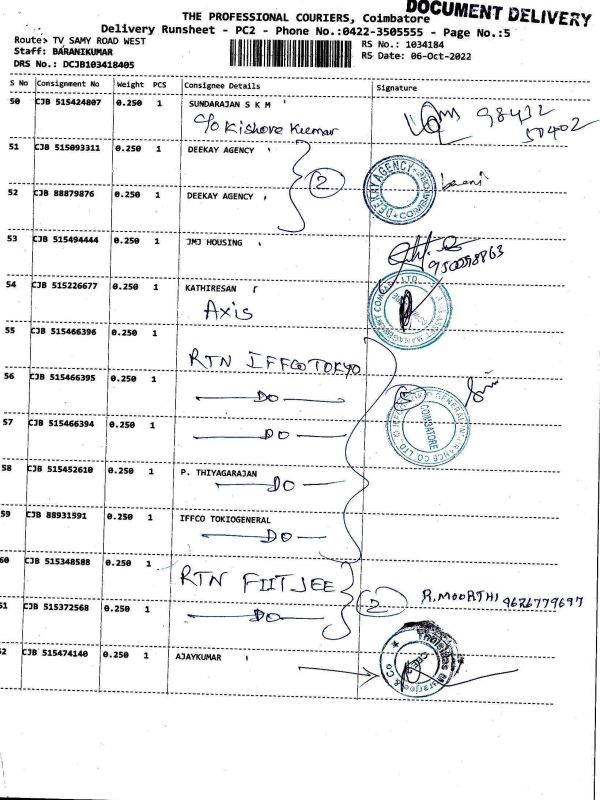 DOCUMENT DELIVERY
THE PROFESSIONAL COURIERS, Coimbatore
Delivery Runsheet - PC2 - Phone No.:0422-3505555 - Page No.:5
Route: TV SAMY ROAD WEST
Staff: BARANIKUMAR
DRS No.: DCJB103418405
RS No.: 1034184
RS Date: 06-Oct-2022
S No Consignment No Weight PCS Consignee Details Signature
50 CJB 515424807 0.250 1 SUNDARAJAN S K M
C/o Kishore Kumar
98432
50402
51 CJB 515093311 0.250 1 DEEKAY AGENCY
2
DEEKAY AGENCY
52 CJB 88879876 0.250 1 DEEKAY AGENCY
53 CJB 515494444 0.250 1 JMJ HOUSING
54 CJB 515226677 0.250 1 KATHIRESAN
Axis
55 CJB 515466396 0.250 1
RTN IFFCO TOKYO
56 CJB 515466395 0.250 1
DO
5
COIMBATORE
57 CJB 515466394 0.250 1
DO
58 CJB 515452610 0.250 1 P. THIYAGARAJAN
DO
59 CJB 88931591 0.250 1 IFFCO TOKIOGENERAL
DO
60 CJB 515348588 0.250 1
RTN FIITJEE
2
R. MOORTHI 9626779697
61 CJB 515372568 0.250 1
DO
62 CJB 515474140 0.250 1 AJAYKUMAR